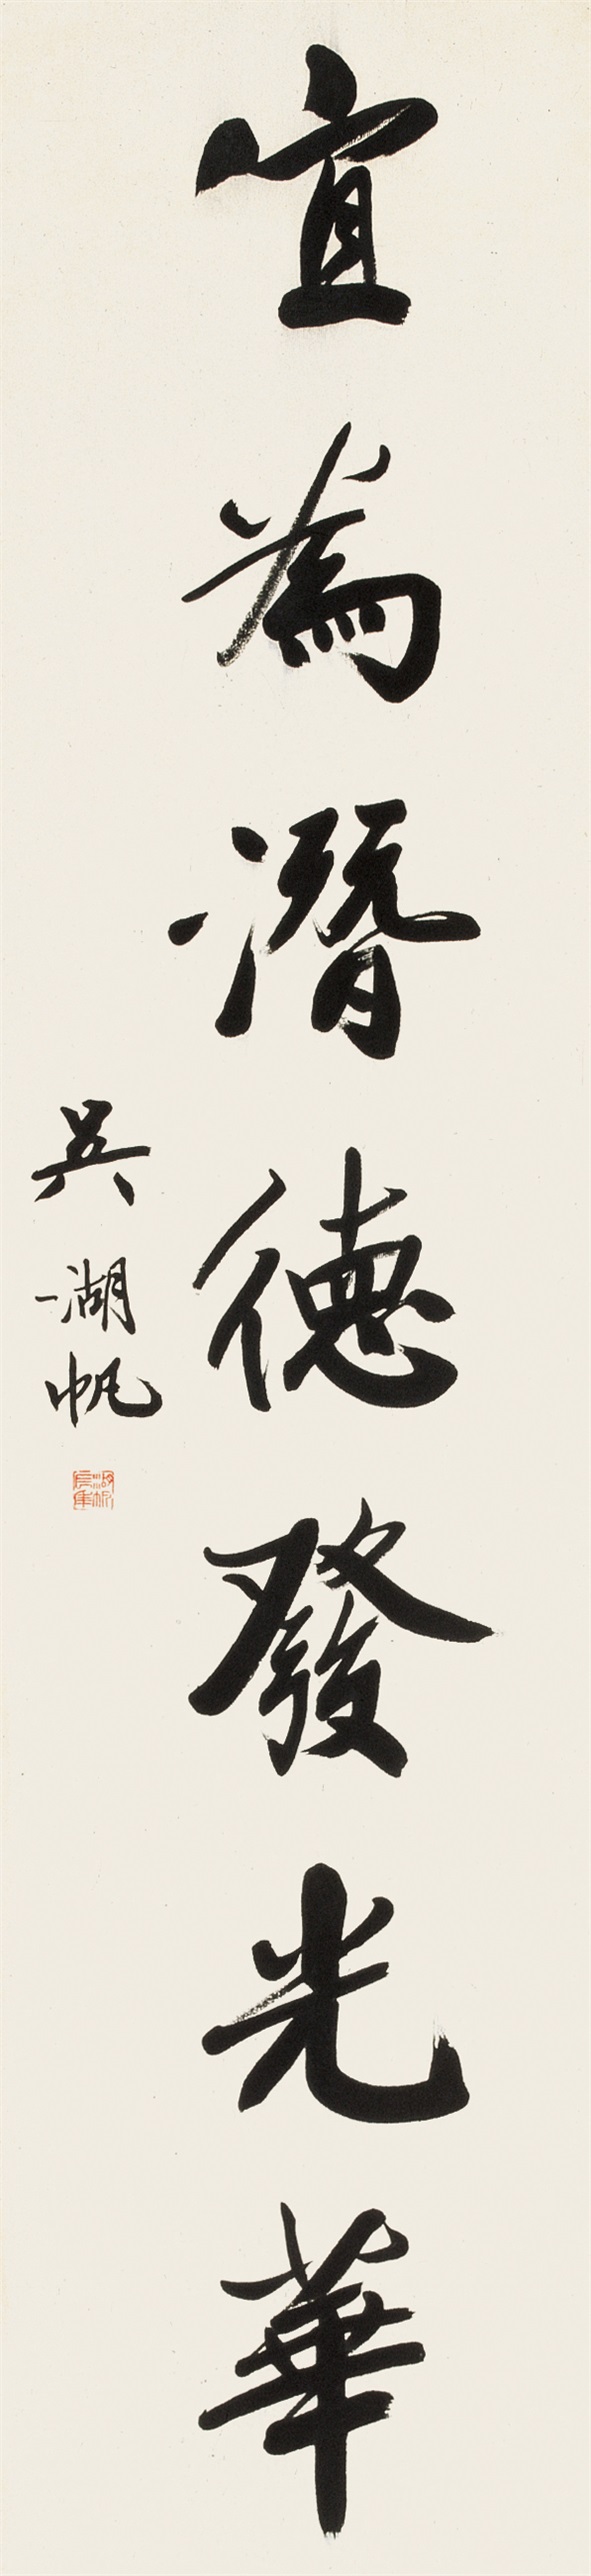 宜為潛德發光華
吳湖帆